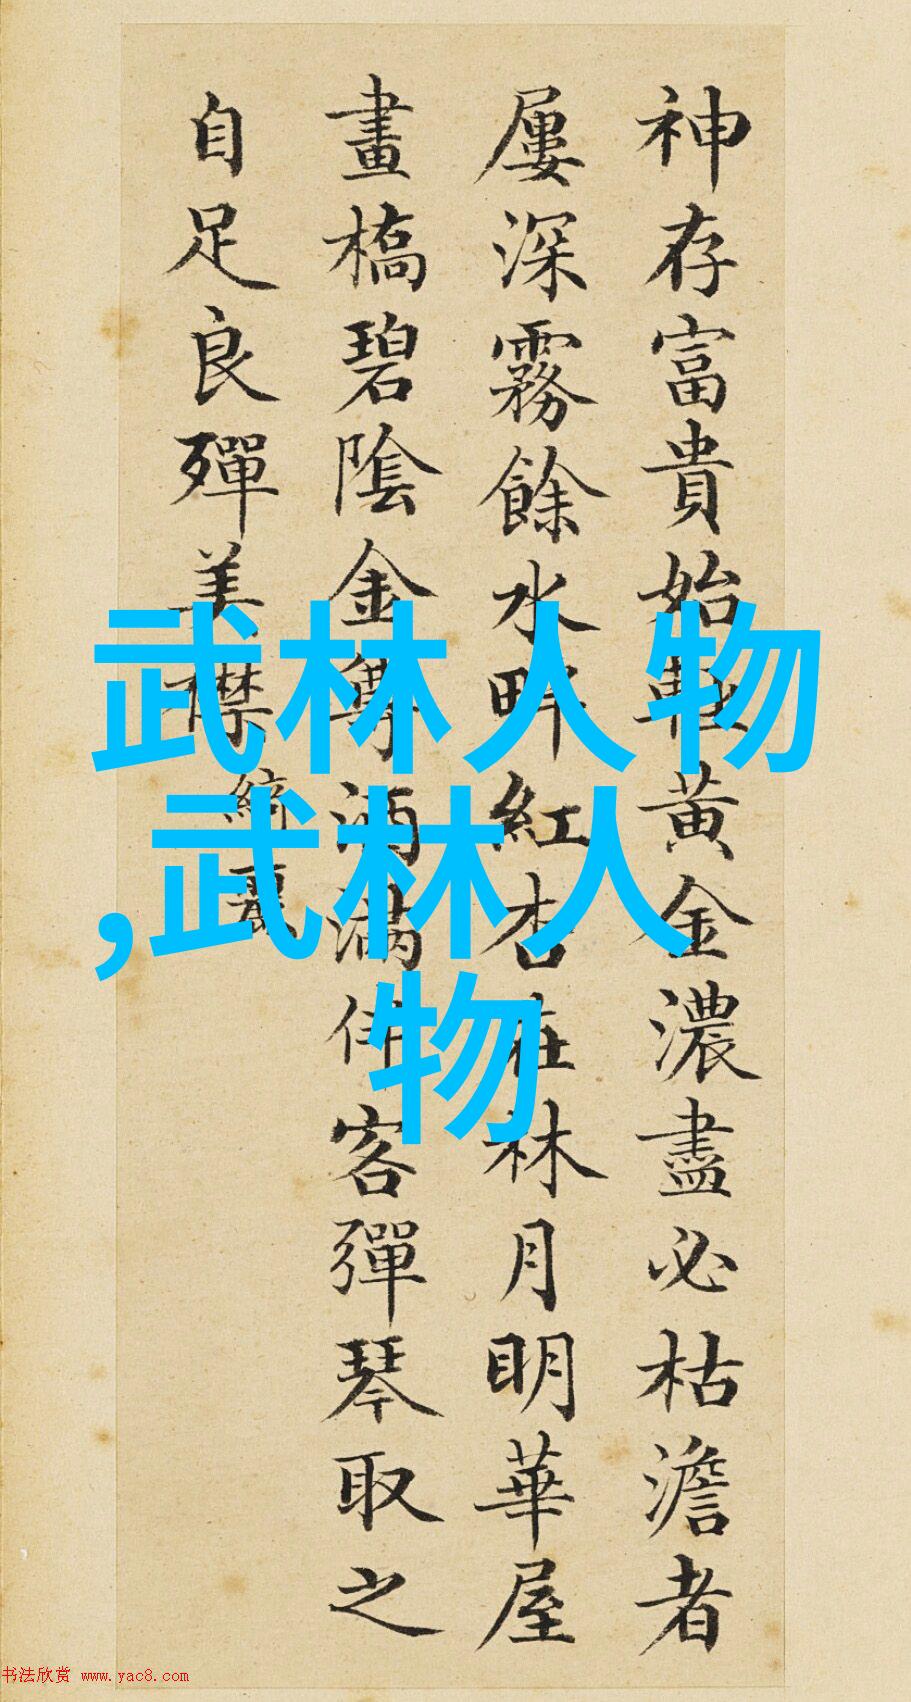 神存富貴始輕黄金濃盡必枯澹者
屢深霧餘水畔紅杏在林月明華屋
畫橋碧陰金尊酒滿伴客彈琴取之
自足良殫美襟
綺麗
武林人物
,武林人
物
书法欣赏 www.yac8.com